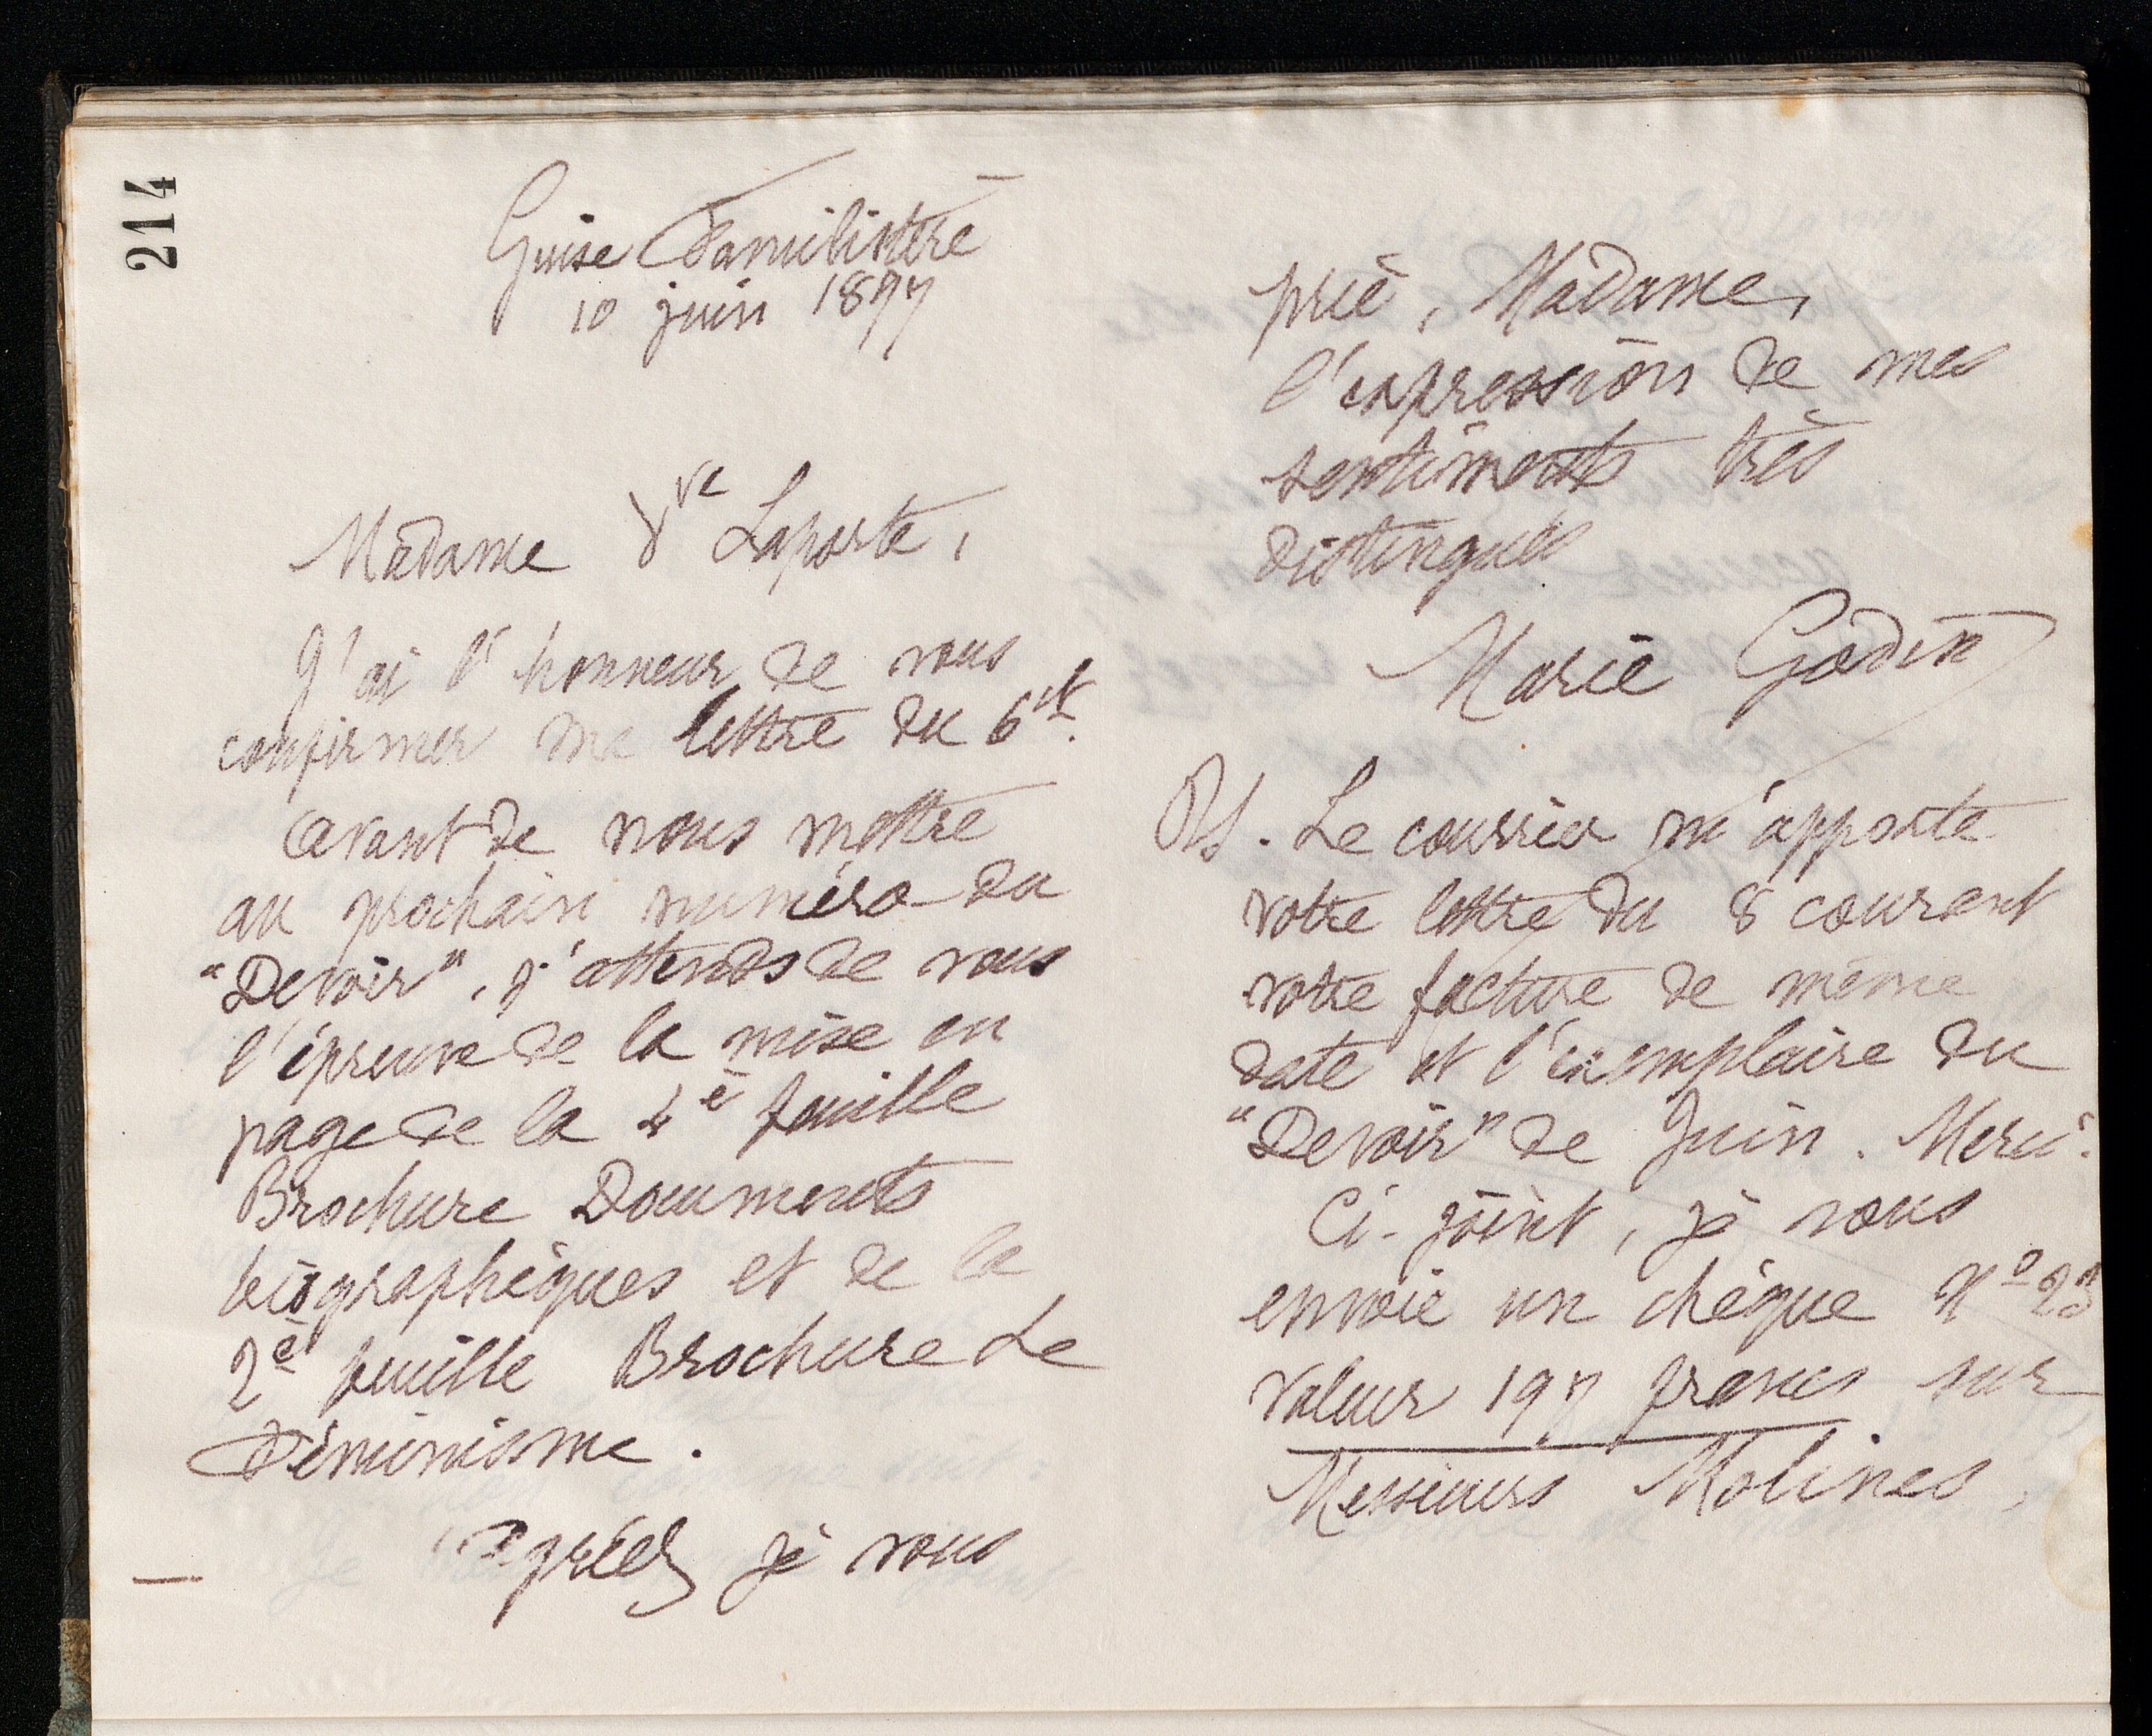 214
Guise Familistère
10 juin 1897
Madame Vve Laporte,
J'ai l'honneur de vous
confirmer ma lettre du 6 ct.
Avant de nous mettre
au prochain numéro du
"Devoir", j'attends de vous
l'épreuve de la mise en
page de la 4e feuille
Brochure Documents
biographiques et de la
2e feuille Brochure Le
Féminisme.
Agréez je vous
prie, Madame,
l'expression de mes
sentiments très
distingués
Marie Godin
Ps. Le courrier m'apporte
votre lettre du 8 courant
votre facture de même
date et l'exemplaire du
"Devoir" de Juin. Merci.
Ci-joint, je vous
envoie un chèque No 23
valeur 197 francs, sur
Messieurs Molines,